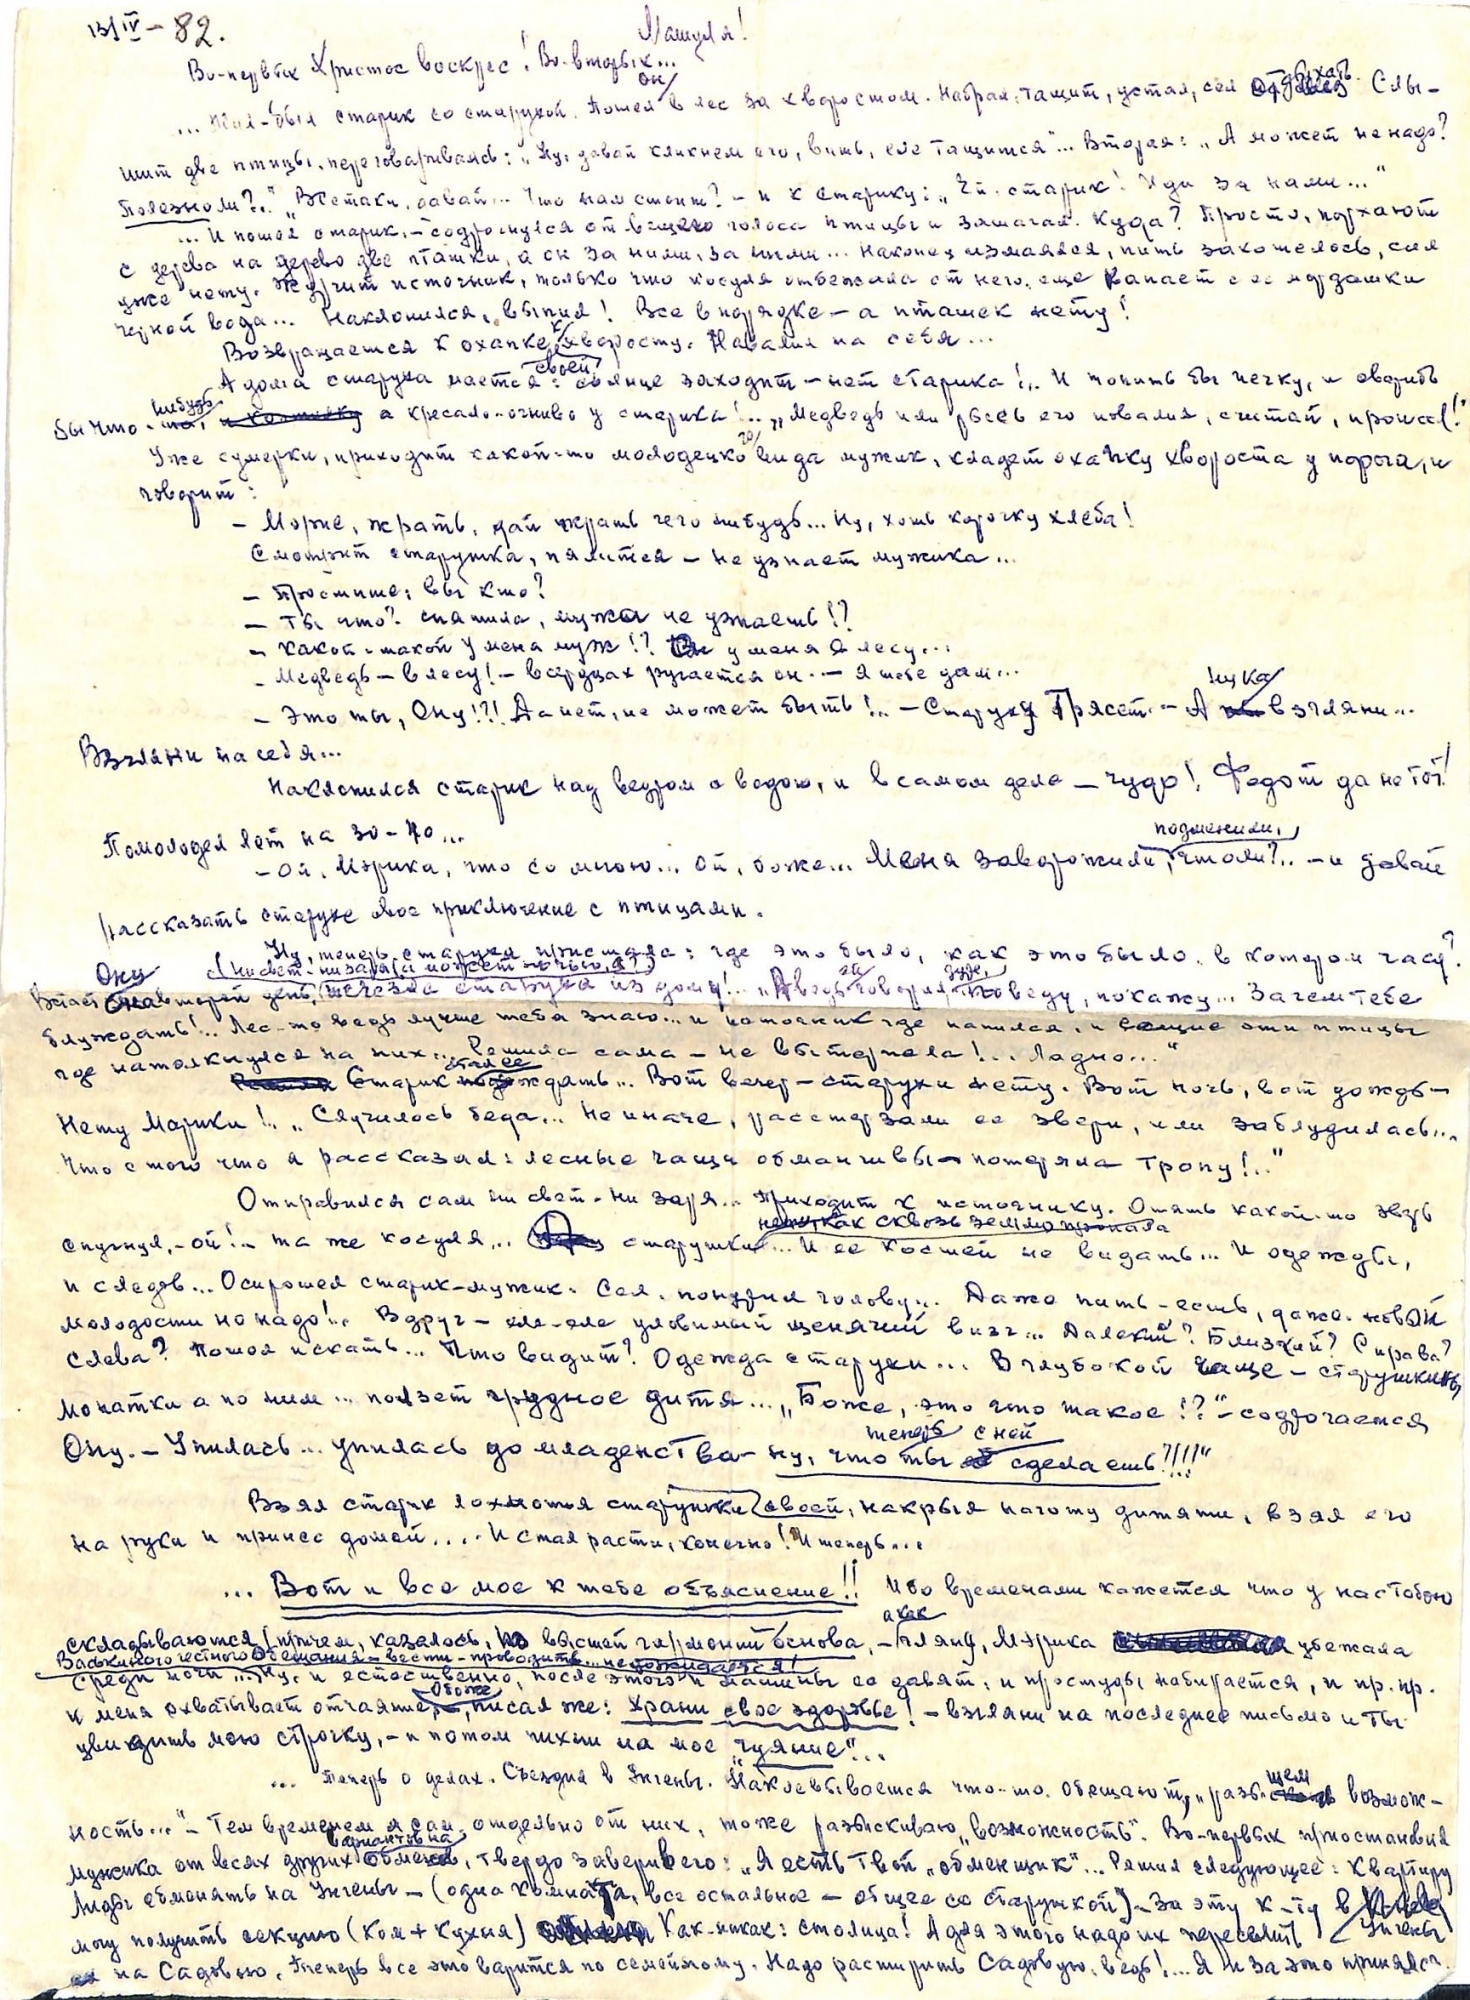 13/IV-82.
Машуля!
Во-первых Христос воскрес! Во-вторых...
... Жил-был старик со старухой. Пошел он в лес за хворостом. Набрал, тащит, устал, сел отдыхать. Слы-
шит две птицы переговариваясь: „Ну, давай кликнем его, вишь, еле тащится"... Вторая: „А может не надо?
Полезно ли?.." „Всетаки, давай... Что нам стоит? – и к старику: „Эй, старик! Иди за нами..."
... И пошел старик, – содрогнулся от вещего голоса птицы и зашагал. Куда? Просто, порхают
с дерева на дерево две пташки, а он за ними, за ними... Наконец измаялся, пить захотелось, сил
уже нету. Журчит источник, только что косуля отбежала от него, еще капает с ее мордашки
черной вода... Наклонился, выпил! Все в порядке – а пташек нету!
Возвращается к охапке своей, к хворосту. Навалил на себя...
А дома старуха мается: солнце заходит – нет старика!.. И топить бы печку, и сварить
бы что-нибудь а кресало-огниво у старика!.. „Медведь или рысь его повалил, считай, пропал!"
Уже сумерки, приходит какой-то молодецкого вида мужик, кладет охапку хвороста у порога, и
говорит:
– Жрать, дай жрать чего нибудь... Ну, хоть корочку хлеба!
Смотрит старушка, пялится – не узнает мужика...
– Простите, вы кто?
– Ты что? спятила, мужа не узнаешь!?
– Какой-такой у меня муж!? Он у меня в лесу...
– Медведь – в лесу! – в сердцах ругается он. – Я тебе дам...
– Это ты, Ону!?!! Да нет, не может быть!.. – Старуху трясет. – А нука взгляни...
Взгляни на себя...
Наклонился старик над ведром с водою, и в самом деле – чудо! Федот да не тот!
Помолодел лет на 30-40...
– Ой, Мэрика, что со мною... Ой, боже... Меня заворожили, подменили, что ли?.. – и давай
рассказать старухе свое приключение с птицами.
Ну, теперь старуха пристала: где это было, как это было, в котором часу?
Встает Ону на второй день, (ни свет-ни заря (а может ночью, а?)) исчезла старуха из дому!.. „А ведь говорил ей дуре, поведу, покажу... Зачем тебе
блуждать!.. Лес-то ведь лучше тебя знаю... и источник где напился, и вещие эти птицы
где натолкнулся на них... Решила сама – не вытерпела!... Ладно..."
Старик стал ее ждать... Вот вечер – старухи нету. Вот ночь, вот дождь –
нету Мэрики!.. „Случилось беда... Не иначе, растерзали ее звери, или заблудилась...
Что с того что я рассказал: лесные чащи обманчивы – потеряла тропу!.."
Отправился сам ни свет-ни заря... Приходит к источнику. Опять какой-то зверь
спугнул, – ой! – та же косуля... старушки нету как сквозь землю пропала... И ее костей не видать... И одежды,
и следов... Осиротел старик-мужик. Сел, понурил голову... Даже пить-есть, даже новый
молодости не надо!.. Вдруг – еле-еле уловимый щенячий визг... Далекий? Близкий? Справа?
Слева? Пошел искать... Что видит? Одежда старухи... В глубокой чаще – старушкины
монатки а по ним... ползет грудное дитя... „Боже, это что такое!?" – содрогается
Ону. – Упилась... упилась до младенства – ну, что ты теперь с ней сделаешь?!!!"
Взял старик лохмотья старушки своей, накрыл наготу дитяти, взял его
на руки и принес домой.... И стал расти, конечно! И теперь...
... Вот и все мое к тебе объяснение!! Ибо временами кажется что у нас с тобою
складываются (причем, казалось, в высшей гармонии основа, – а как гляну, Мэрика убежала
Васькиного честного обещания – вести-проводить... не дожидается!
среди ночи... Ну, и естественно, после этого и машины ее давят, и простуды набирается, и пр. пр.
и меня охватывает отчаяние, – О боже, писал же: Храни свое здоровье! – взгляни на последнее письмо и ты
увидишь мою строчку, – и потом пихаи на мое „чуяние"...
... Теперь о делах. Съездил в Унгены. Наклевывается что-то. Обещают, „разыщем возмож-
ность..." – Тем временем я сам, отдельно от них, тоже разыскиваю „возможность". Во-первых приостановил
мужика от всех других вариантов на обмен, твердо заверив его: „Я есть твой „обменщик"... Решил следующее: квартиру
Лиды обменять на Унгены – (одна комната, все остальное – общее со старушкой) – За эту к-ту в Унгены
могу получить секцию (Ком + Кухня) Как-никак: столица! А для этого надо их переселить
на Садовую. Теперь все это варится по семейному. Надо расширить Садовую, ведь!... Я и за это принялся.